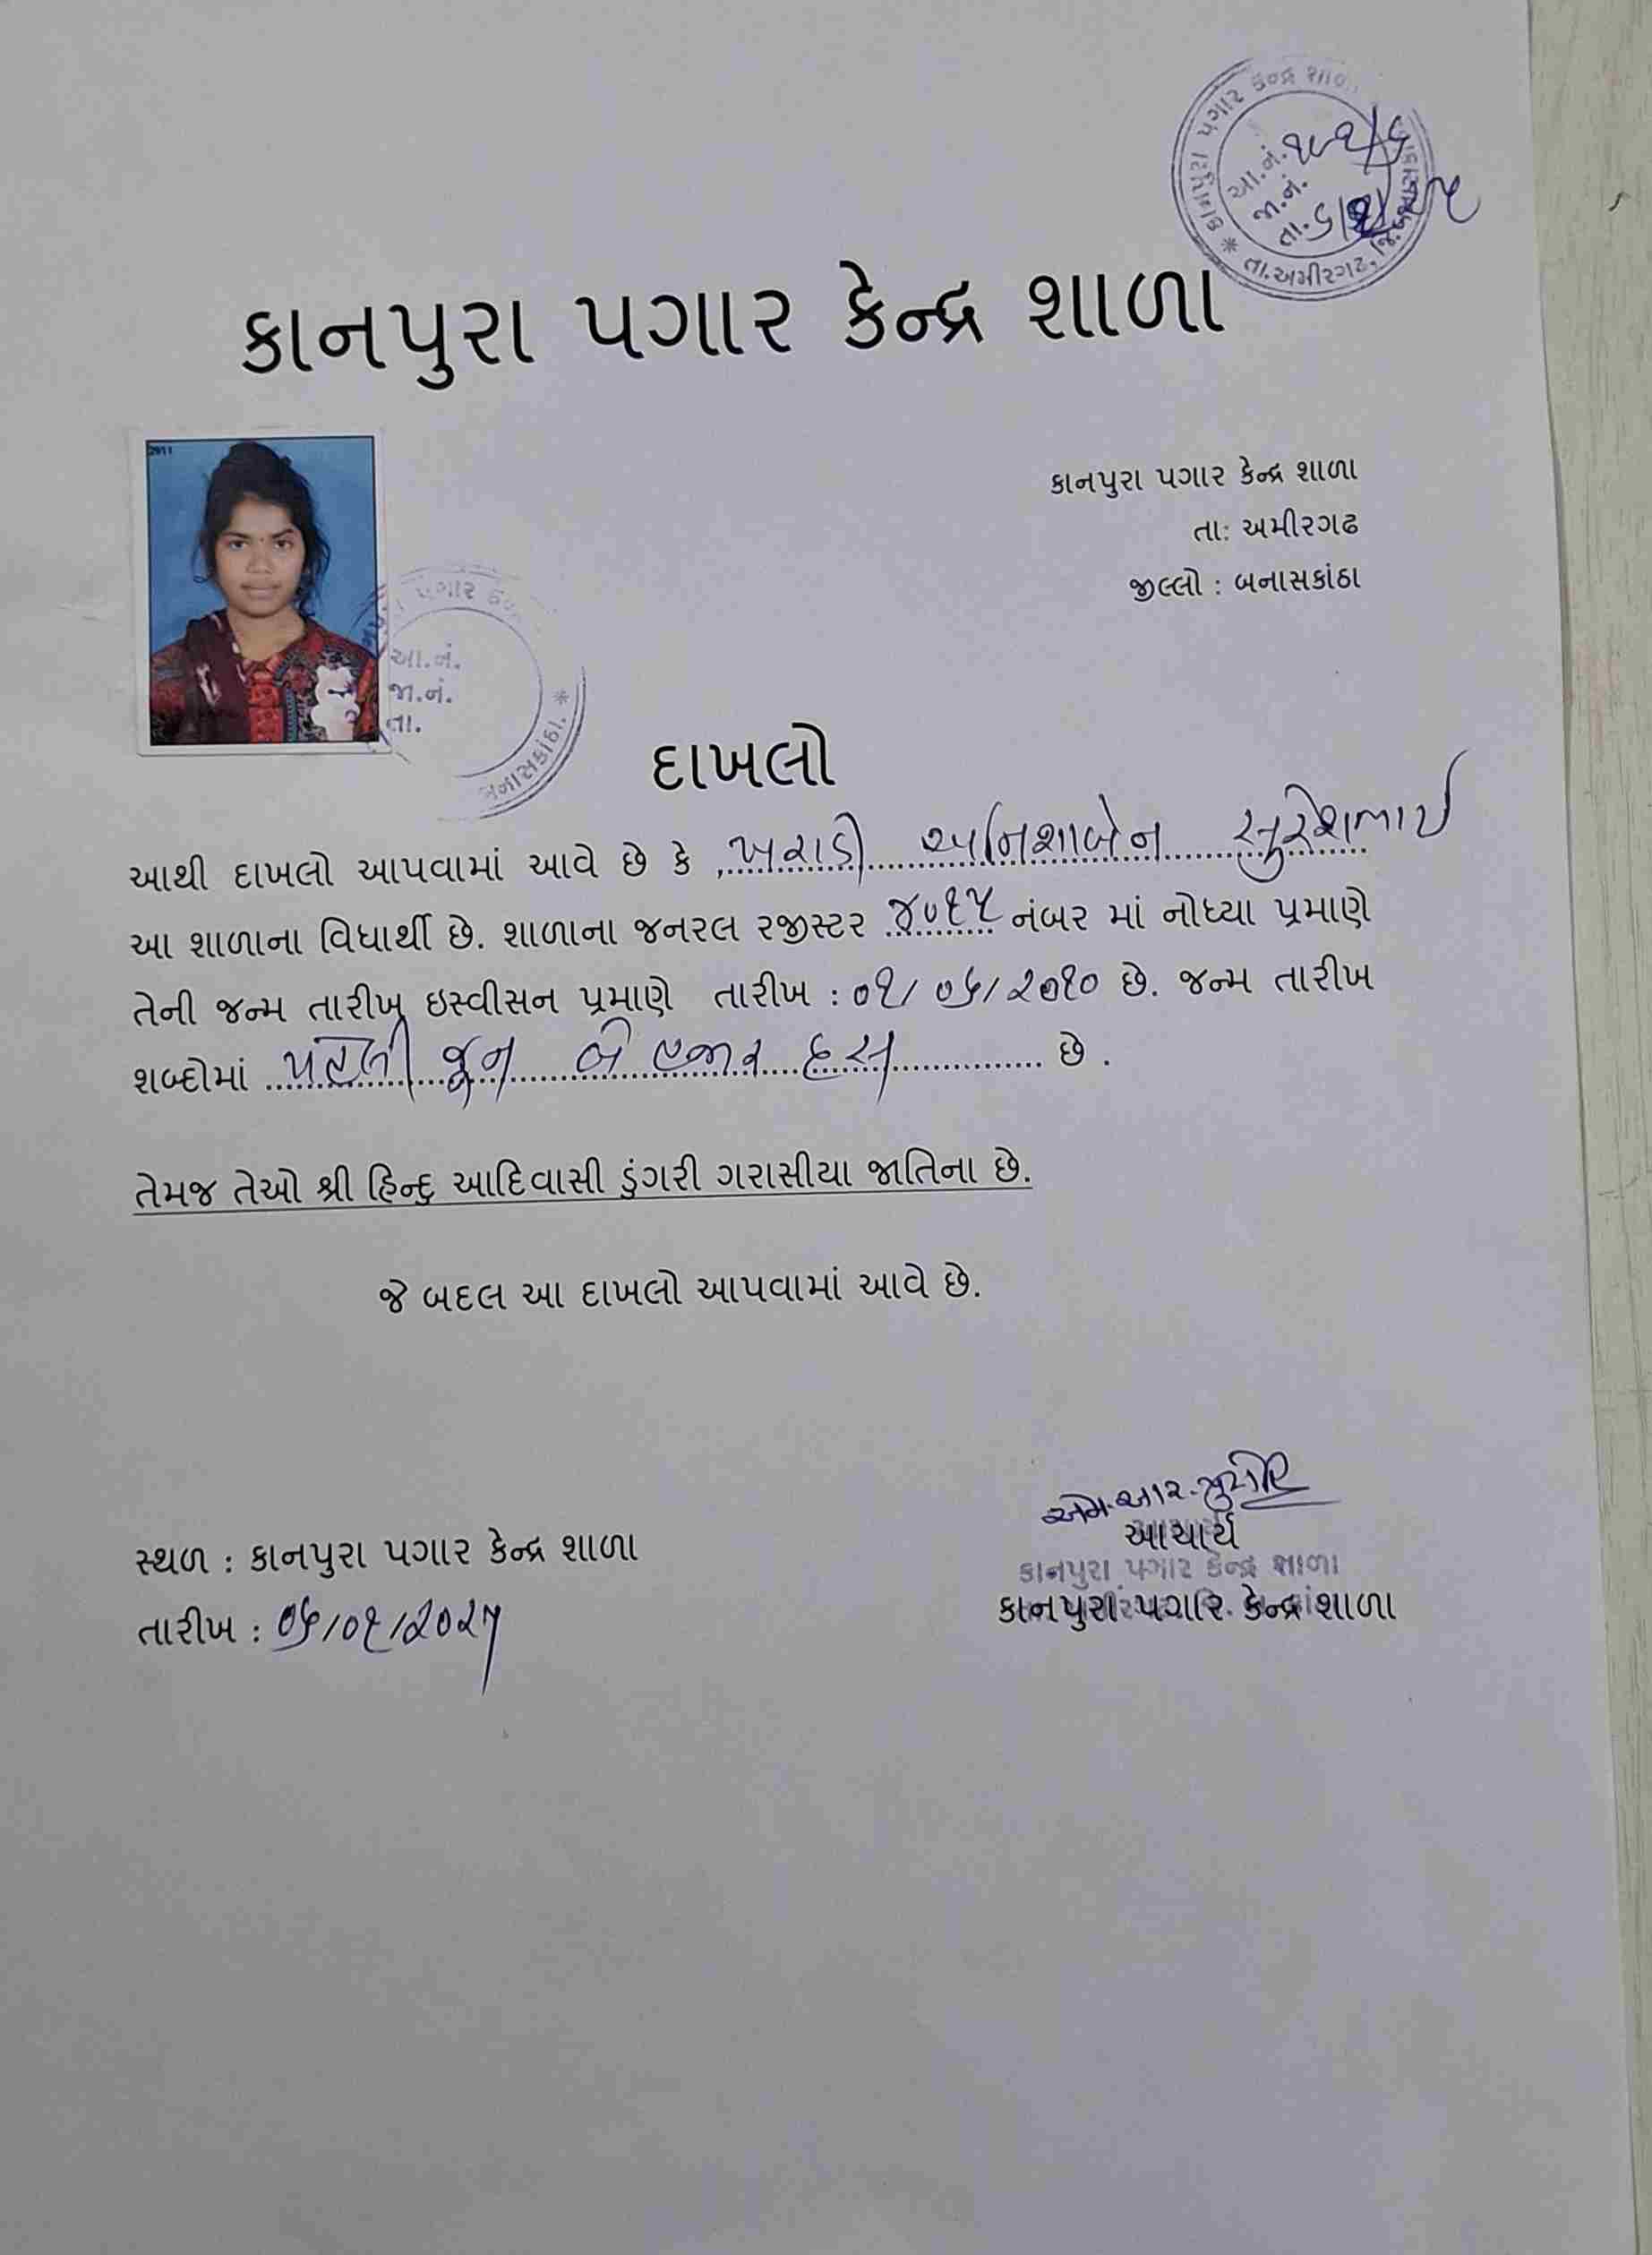 પગાર કેન્દ્ર શાળા
આ.નં.
જા.નં.
તા.
તા.અમીરગઢ,
કાનપુરા પગાર કેન્દ્ર શાળા
2911
કાનપુરા પગાર કેન્દ્ર શાળા
તા: અમીરગઢ
જીલ્લો : બનાસકાંઠા
પગાર
આ.નં.
જા.નં.
તા.
બનાસકાંઠા.
દાખલો
આથી દાખલો આપવામાં આવે છે કે ,ખરાડી અનિશાબેન સુરેશભાઈ
આ શાળાના વિધાર્થી છે. શાળાના જનરલ રજીસ્ટર ૪૦૧૫ નંબર માં નોધ્યા પ્રમાણે
તેની જન્મ તારીખ ઇસ્વીસન પ્રમાણે તારીખ : ૦૧/ ૦૬/ ૨૦૧૦ છે. જન્મ તારીખ
શબ્દોમાં પહેલી જૂન બે હજાર દસ છે .
તેમજ તેઓ શ્રી હિન્દુ આદિવાસી ડુંગરી ગરાસીયા જાતિના છે.
જે બદલ આ દાખલો આપવામાં આવે છે.
એમ.આર.
આચાર્ય
કાનપુરા પગાર કેન્દ્ર શાળા
કાનપુરા પગાર કેન્દ્ર શાળા
સ્થળ : કાનપુરા પગાર કેન્દ્ર શાળા
તારીખ : ૦૬/૦૧/૨૦૨૫